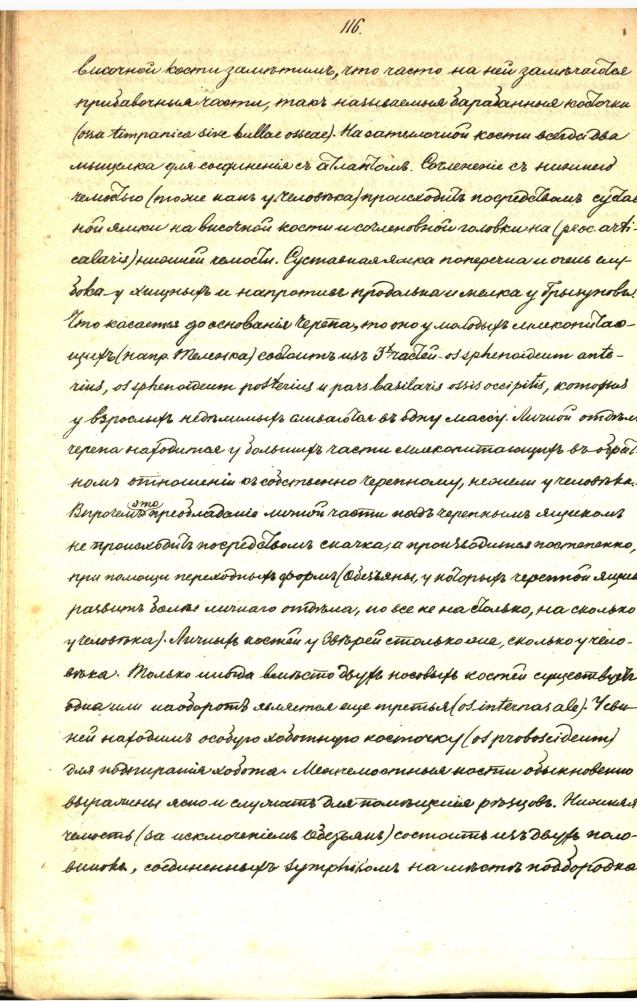 116.
височной кости замѣтимъ, что часто на ней замѣчаются
прибавочныя части, такъ называемыя барабанныя
(ossa timpanica sive bullae osseae). На затылочной кости всегда два
мыщелка для соединенія съ атлантомъ. Сочлененіе съ нижнею
челюстью (тоже какъ у человѣка) происходитъ посредствомъ сустав
ной ямки на височной кости и сочленовной головки на (proc. arti-
calaris) нижней челюсти. Суставная ямка поперечна и очень глу
бока у хищныхъ и напротивъ продольна и мелка у грызуновъ.
Что касается до основанія черепа, то оно у молодыхъ млекопитаю-
щихъ (напр. теленка) состоитъ изъ 3хъ частей - os sphenoideum ante-
rius, os sphenoideum posterius и pars basilaris ossis occipitis, которыя
у взрослыхъ недѣлимыхъ сливаются въ одну массу. Личной отдѣлъ
черепа находится у большихъ части млекопитающихъ въ обрат
номъ отношеніи къ собственно черепному, нежели у человѣка.
Впрочемъ это преобладаніе личной части надъ черепнымъ ящикомъ
не происходитъ посредствомъ скачка, а производится постепенно,
при помощи переходныхъ формъ (Обезьяны, у которыхъ черепной ящикъ
развитъ болѣе личнаго отдѣла, но все не на столько, на сколько
у человѣка). Личныхъ костей у Звѣрей столько же, сколько у чело-
вѣка. Только иногда вмѣсто двухъ носовыхъ костей существуетъ
одна или наоборотъ является еще третья (os internasale). У сви
ней находимъ особую хоботную косточку (os proboscideum)
для подпиранія хобота. Межчелюстныя кости обыкновенно
выражены ясно и служатъ для помѣщенія рѣзцовъ. Нижняя
челюсть (за исключеніемъ Обезьянъ) состоитъ изъ двухъ поло-
винокъ, соединенныхъ на мѣстѣ подбородка